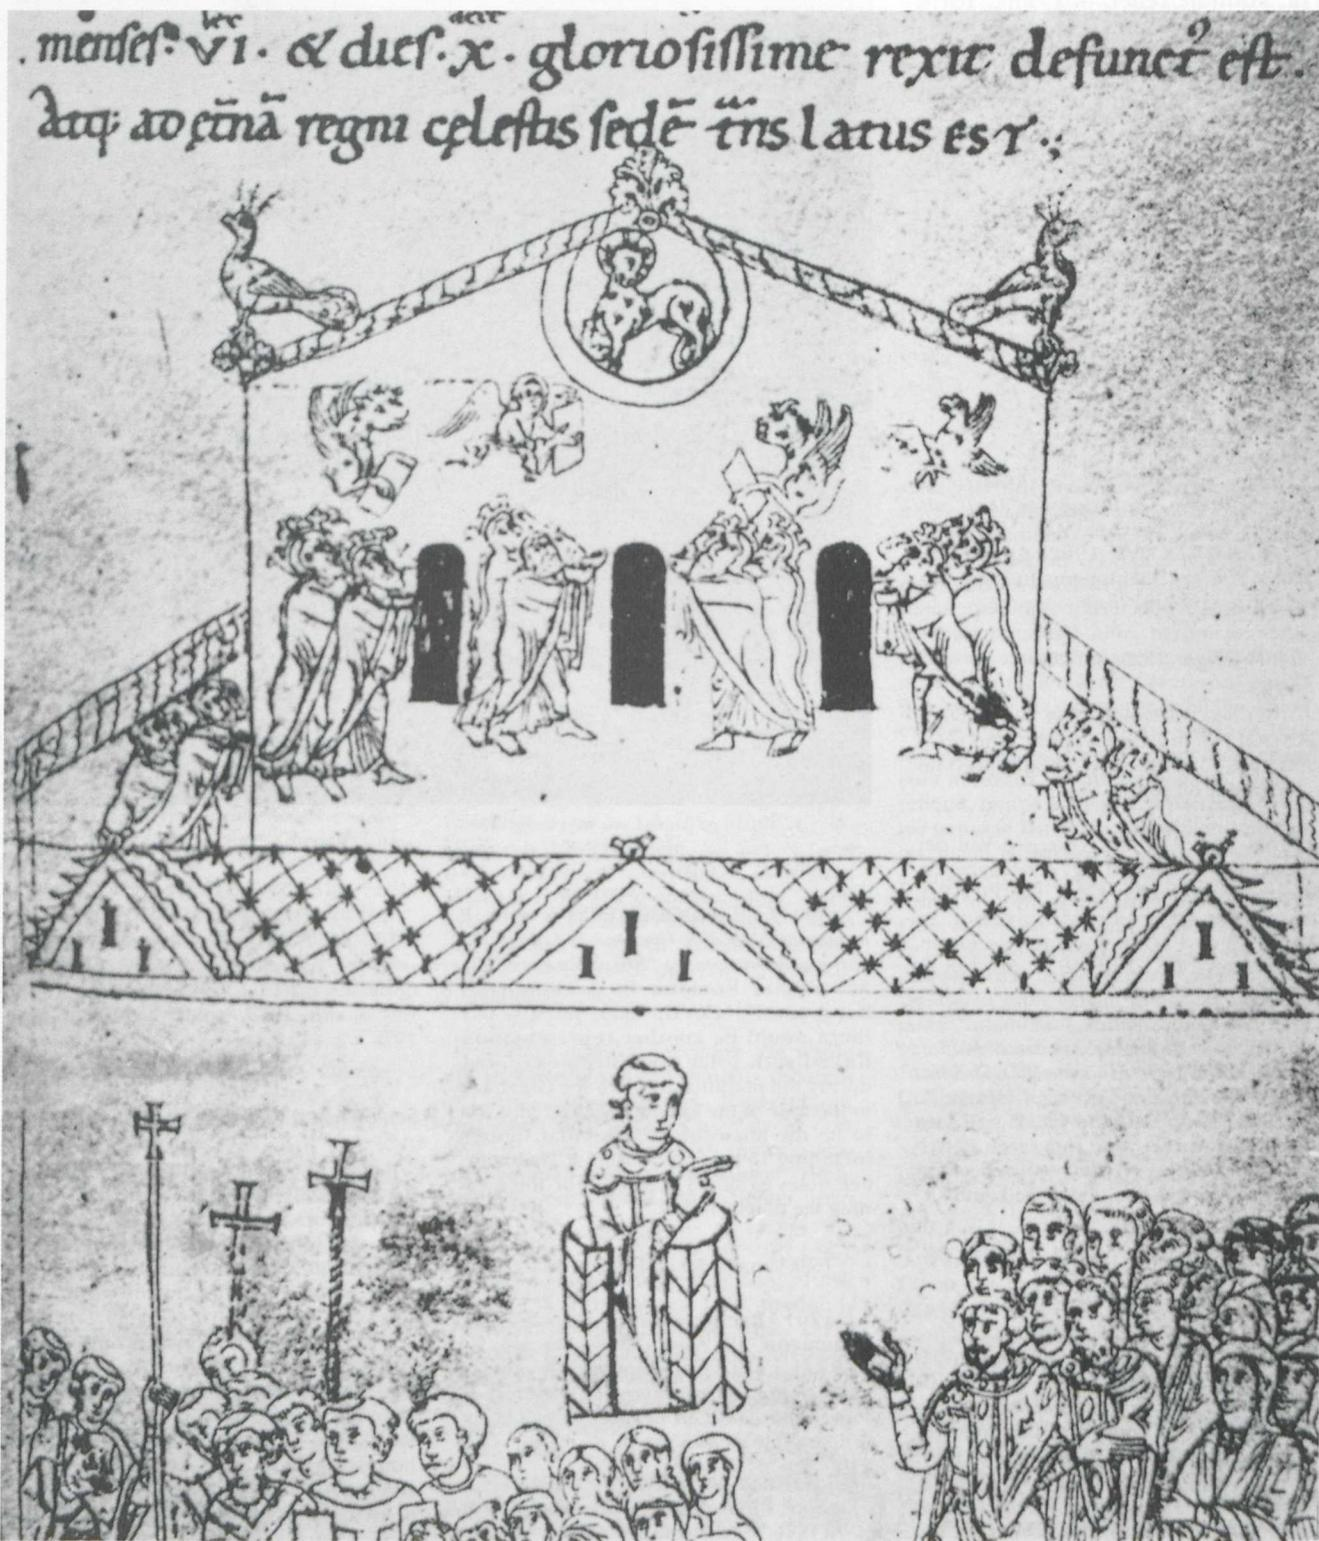 menses. VI. & dies. X. gloriosissime rexit defunct᾿ est.
Atq; ad ęt̄nā regni cęlestis sedē t̄ns latus est.;